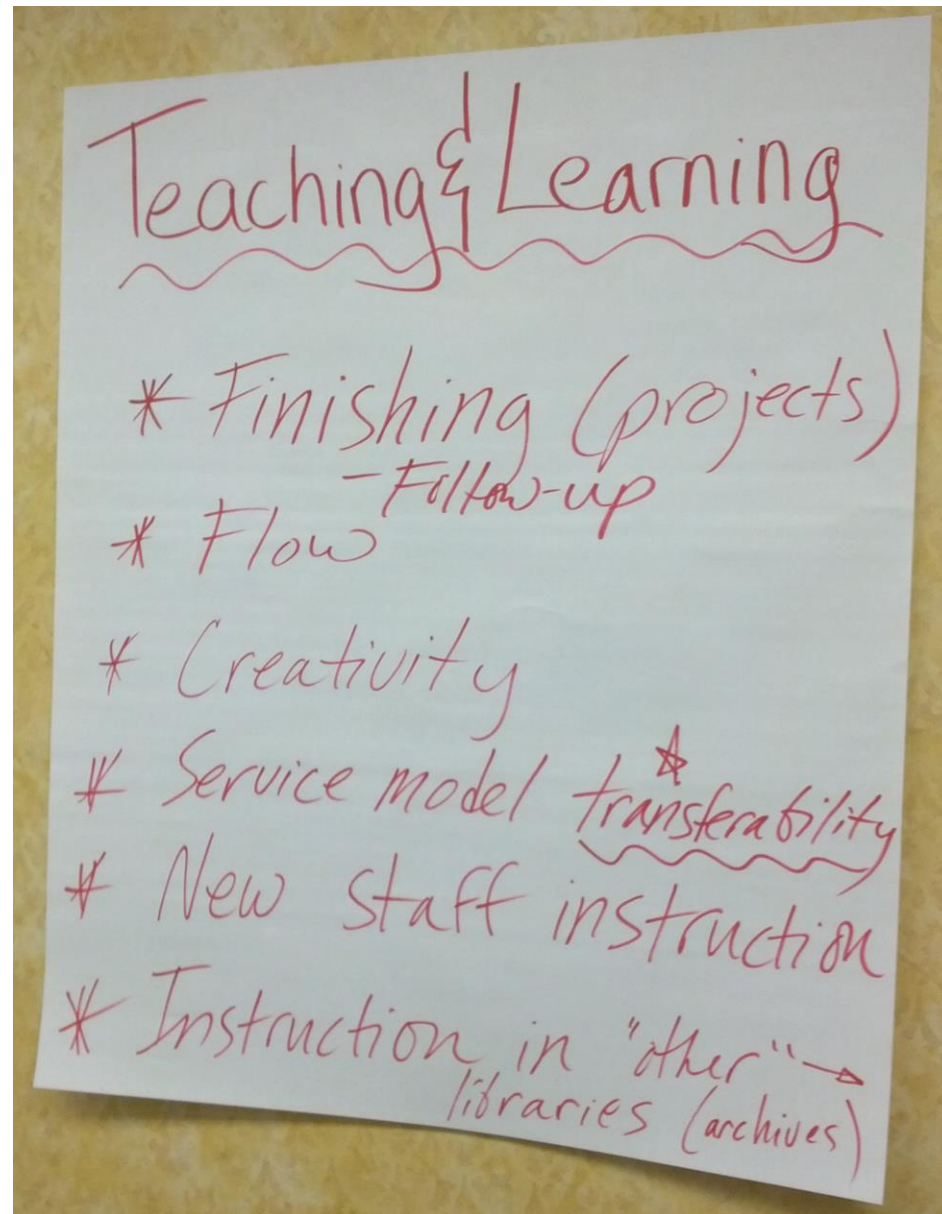 Teaching & Learning
* Finishing (projects)
- Follow-up
* Flow
* Creativity
* Service model transferability
* New staff instruction
* Instruction in "other" →
libraries (archives)